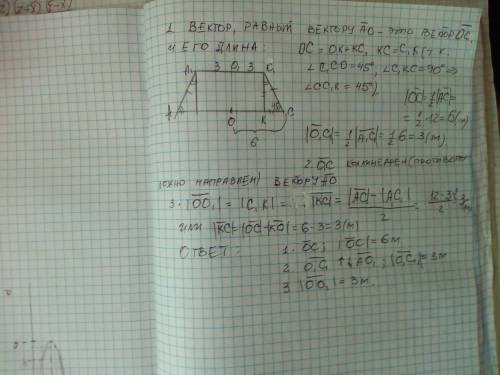 1. ВЕКТОР, РАВНЫЙ ВЕКТОРУ AO - ЭТО ВЕКТОР OC,
И ЕГО ДЛИНА:
OC = OK+KC, KC=C₁K (т.к.
∠C₁CO=45°, ∠C₁KC=90° ⇒
∠CC₁K = 45°).
A₁ 3 O₁ 3 C₁
A O K 45° C
6
|OC|=½|AC|=
= ½·12=6(м)
|O₁C₁|=½|A₁C₁|=½·6=3(м)
2. O₁C₁ КОЛЛИНЕАРЕН (ПРОТИВОПОЛ
НАПРАВЛЕН) ВЕКТОРУ AO
3. |OO₁| = |C₁K| = |KC| = |AC|-|A₁C₁| / 2 =
ИЛИ |KC|=|OC|-|KO|=6-3=3(м)
ОТВЕТ:
1. OC; |OC|=6м
2. O₁C₁ ↑↓ AO; |O₁C₁|=3м
3. |OO₁|=3м.